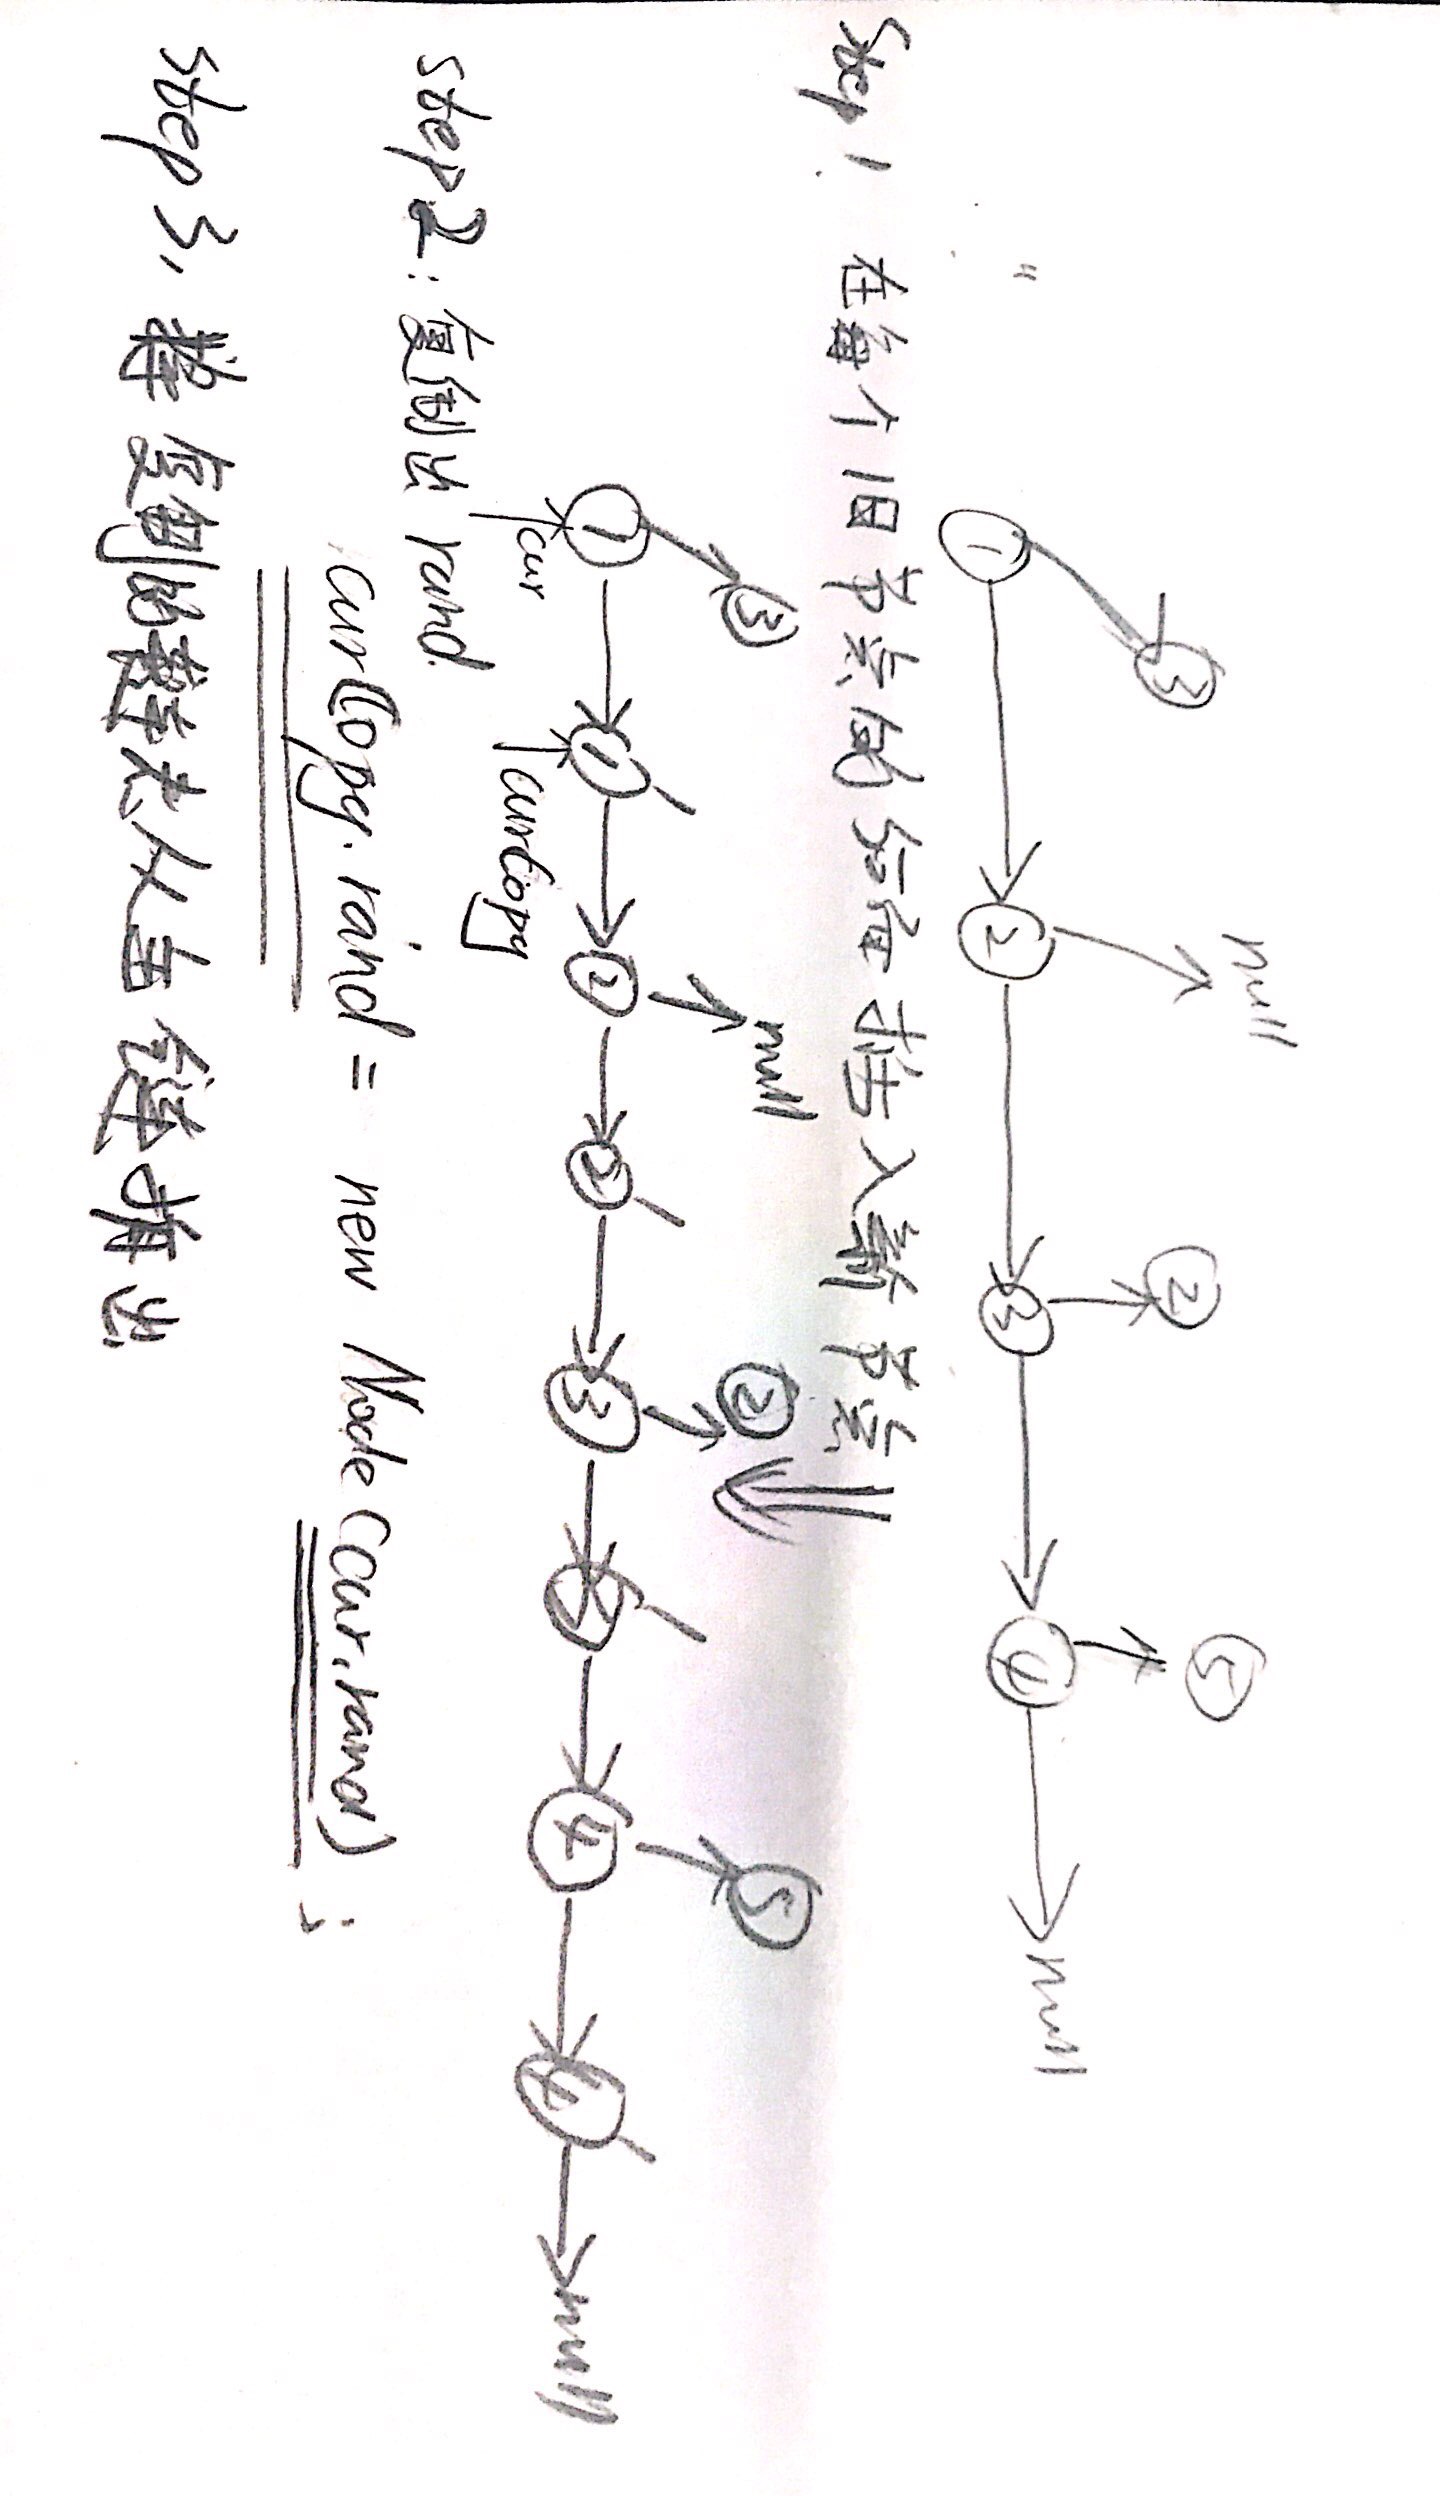 null
3 2 5
1 2 3 4 null
Step 1. 在每个旧节点的后面插入新节点
3 null 2 5
1 1' 2 2' 3 3' 4 4' null
cur curCopy
step2: 复制出 rand.
curCopy.rand = new Node (cur.rand) ;
step 3, 将复制的链表从主链拆出